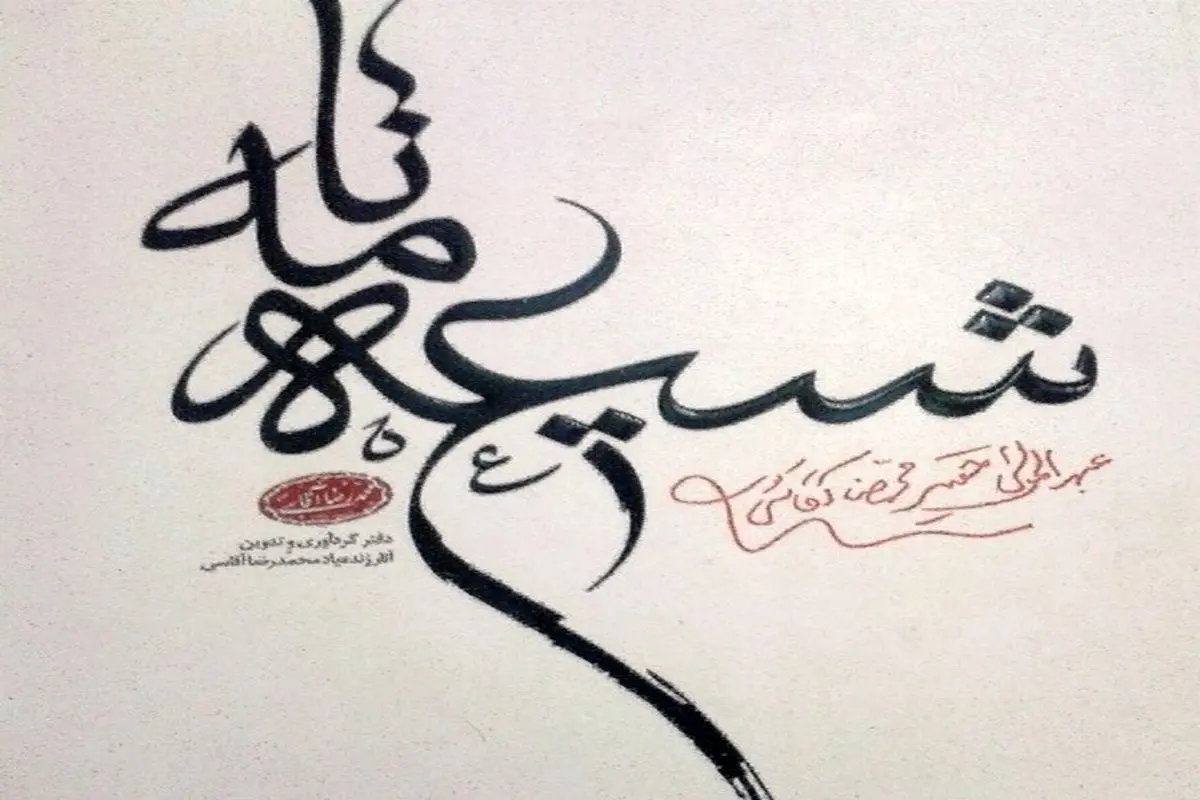 شیعه نامه
عبدالمولی حقیر محمدرضا آقاسی
محمدرضا آقاسی
دفتر گردآوری و تدوین
آثار زنده‌یاد محمدرضا آقاسی